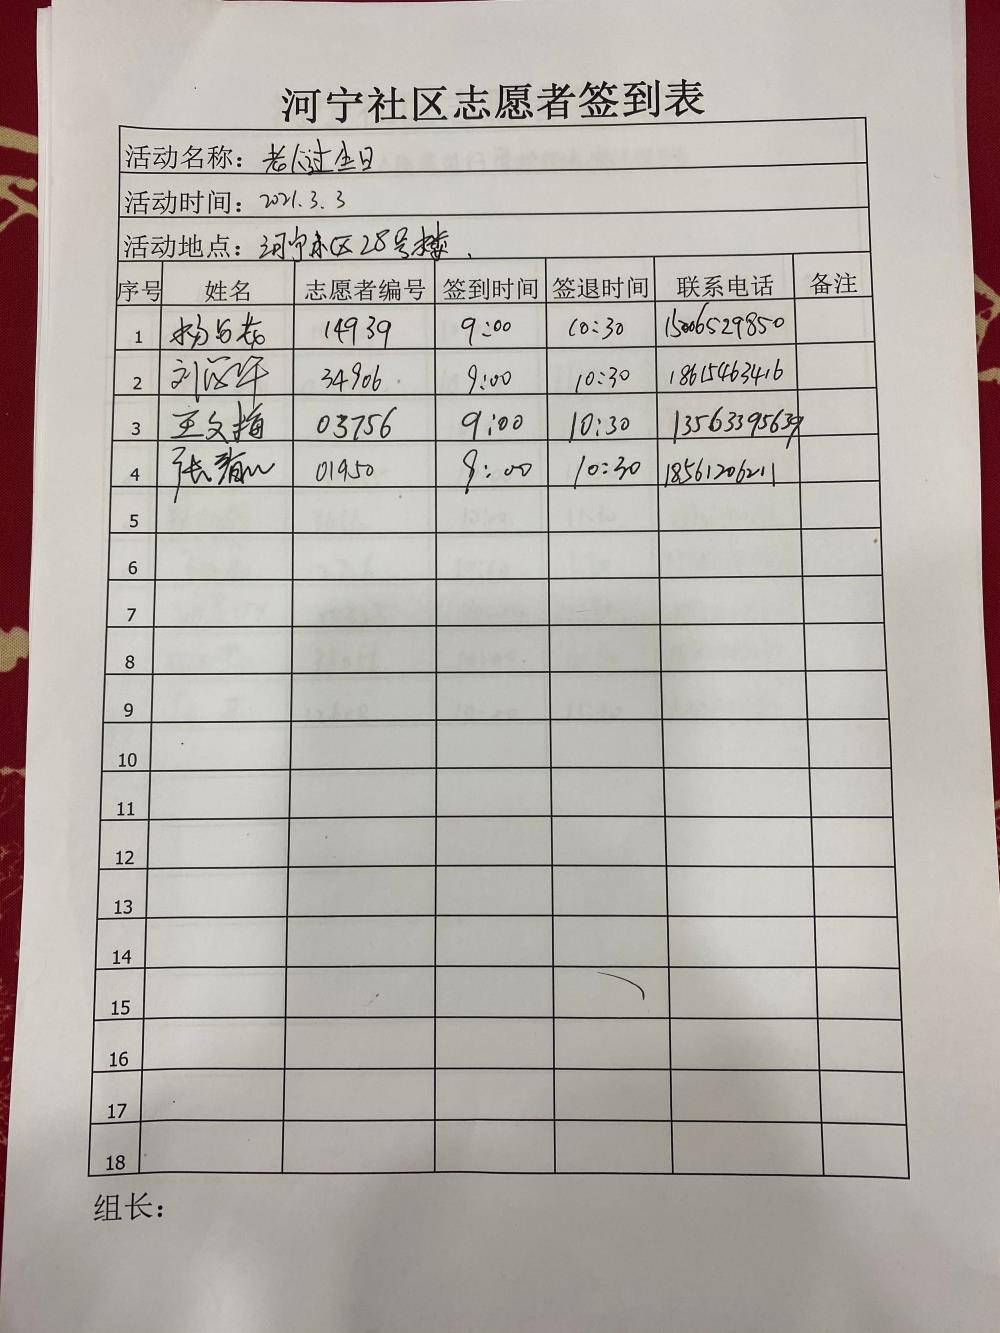 河宁社区志愿者签到表
活动名称：老人过生日
活动时间：2021.3.3
活动地点：河宁社区28号楼.
序号 姓名 志愿者编号 签到时间 签退时间 联系电话 备注
1 杨 14939 9:00 10:30 15006529850
2 刘 34906 9:00 10:30 18615463416
3 王文梅 03756 9:00 10:30 13563395639
4 张 01950 9:00 10:30 18561206211
5
6
7
8
9
10
11
12
13
14
15
16
17
18
组长：